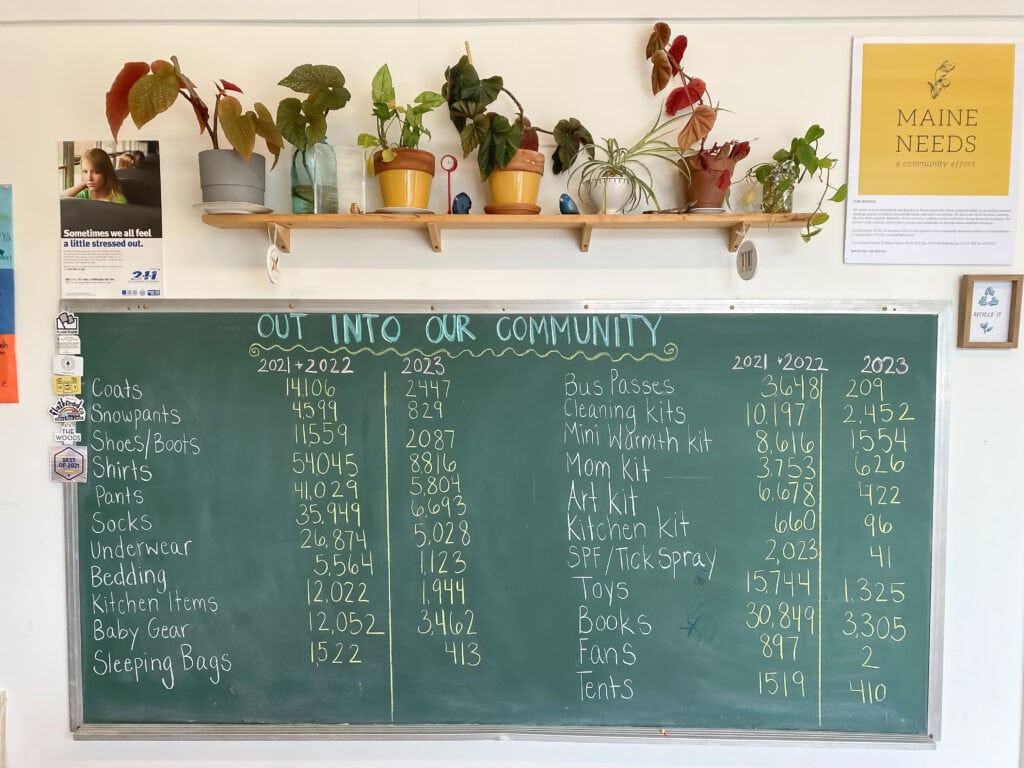 MAINE
NEEDS
a community effort
OUR MISSION
Sometimes we all feel
a little stressed out.
211
RECYCLE IT
THE
WOODS
BEST OF 2021
OUT INTO OUR COMMUNITY
2021 + 2022 2023
Coats 14,106 2447
Snowpants 4599 829
Shoes/Boots 11559 2087
Shirts 54045 8,816
Pants 41,029 5,804
Socks 35,949 6,693
Underwear 26,874 5,028
Bedding 5,564 1,123
Kitchen Items 12,022 1,944
Baby Gear 12,052 3,462
Sleeping Bags 1,522 413
2021 + 2022 2023
Bus Passes 3,648 209
Cleaning kits 10,197 2,452
Mini Warmth kit 8,616 1554
Mom kit 3,753 626
Art kit 6,678 422
Kitchen kit 660 96
SPF/Tick Spray 2,023 41
Toys 15,744 1,325
Books 30,849 3,305
Fans 897 2
Tents 1519 410